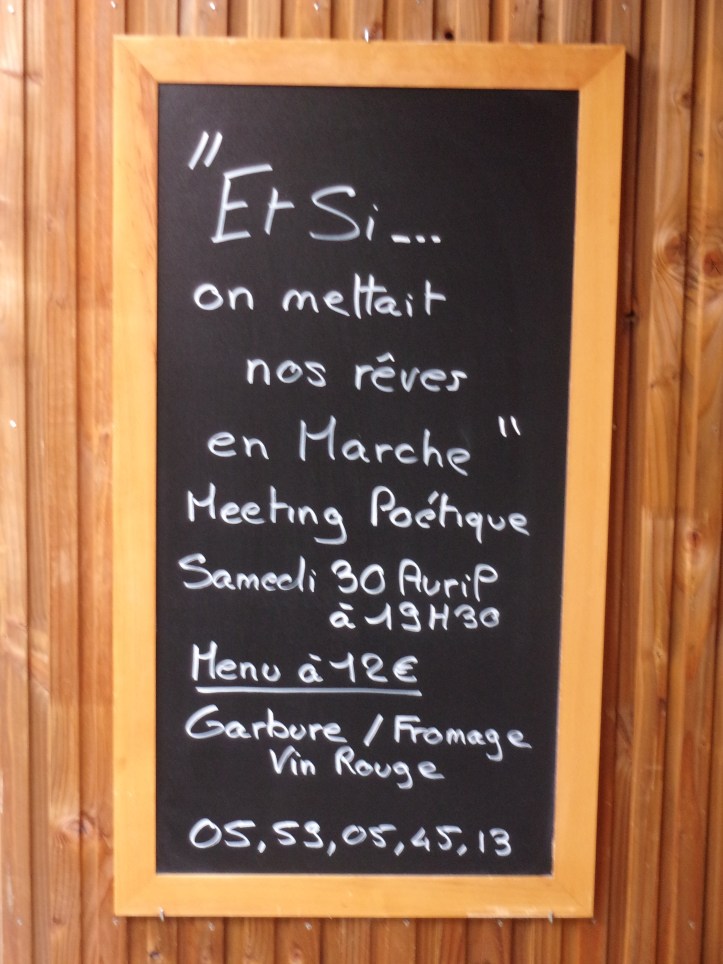 "Et Si...
on mettait
nos rêves
en Marche"
Meeting Poétique
Samedi 30 Avril
à 19H30
Menu à 12€
Garbure / Fromage
Vin Rouge
05,59,05,45,13